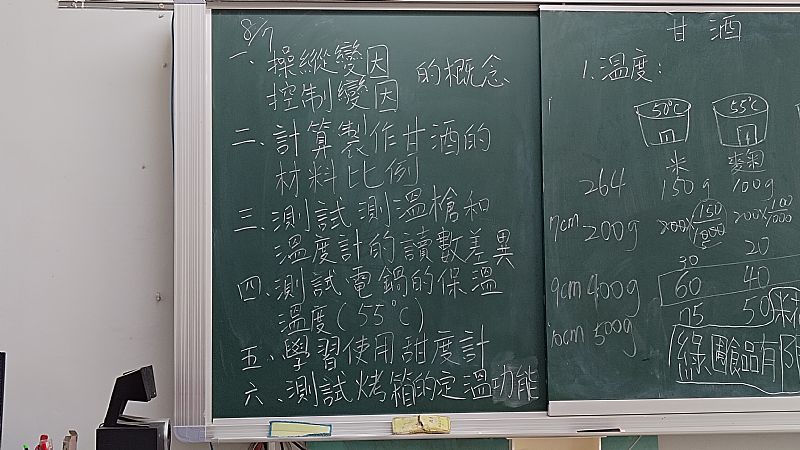 8/7
一、操縱變因
控制變因 的概念
二、計算製作甘酒的
材料比例
三、測試測溫槍和
溫度計的讀數差異
四、測試電鍋的保溫
溫度(55°C)
五、學習使用甜度計
六、測試烤箱的定溫功能
甘酒
1.溫度:
50°C 55°C
米
264 150g 100g
7cm 200g 200×150/1000 200×100/1000
30 20
9cm 400g 60 40
10cm 500g 75 50
綠園食品有限